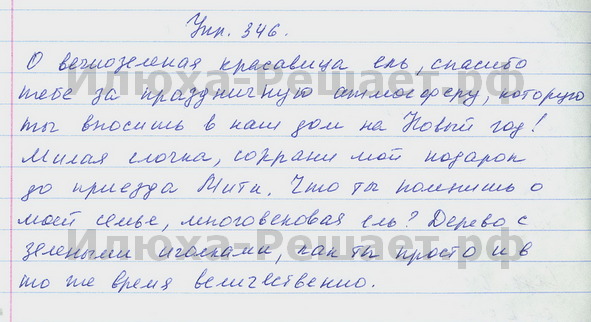 Упр. 346.
О вечнозеленая красавица ель, спасибо
тебе за праздничную атмосферу, которую
ты вносишь в наш дом на Новый год!
Милая елочка, сохрани мой подарок
до приезда Мити. Что ты помнишь о
моей семье, многовековая ель? Дерево с
зелеными иголками, как ты просто и в
то же время величественно.
Илюха-Решает.рф
Илюха-Решает.рф